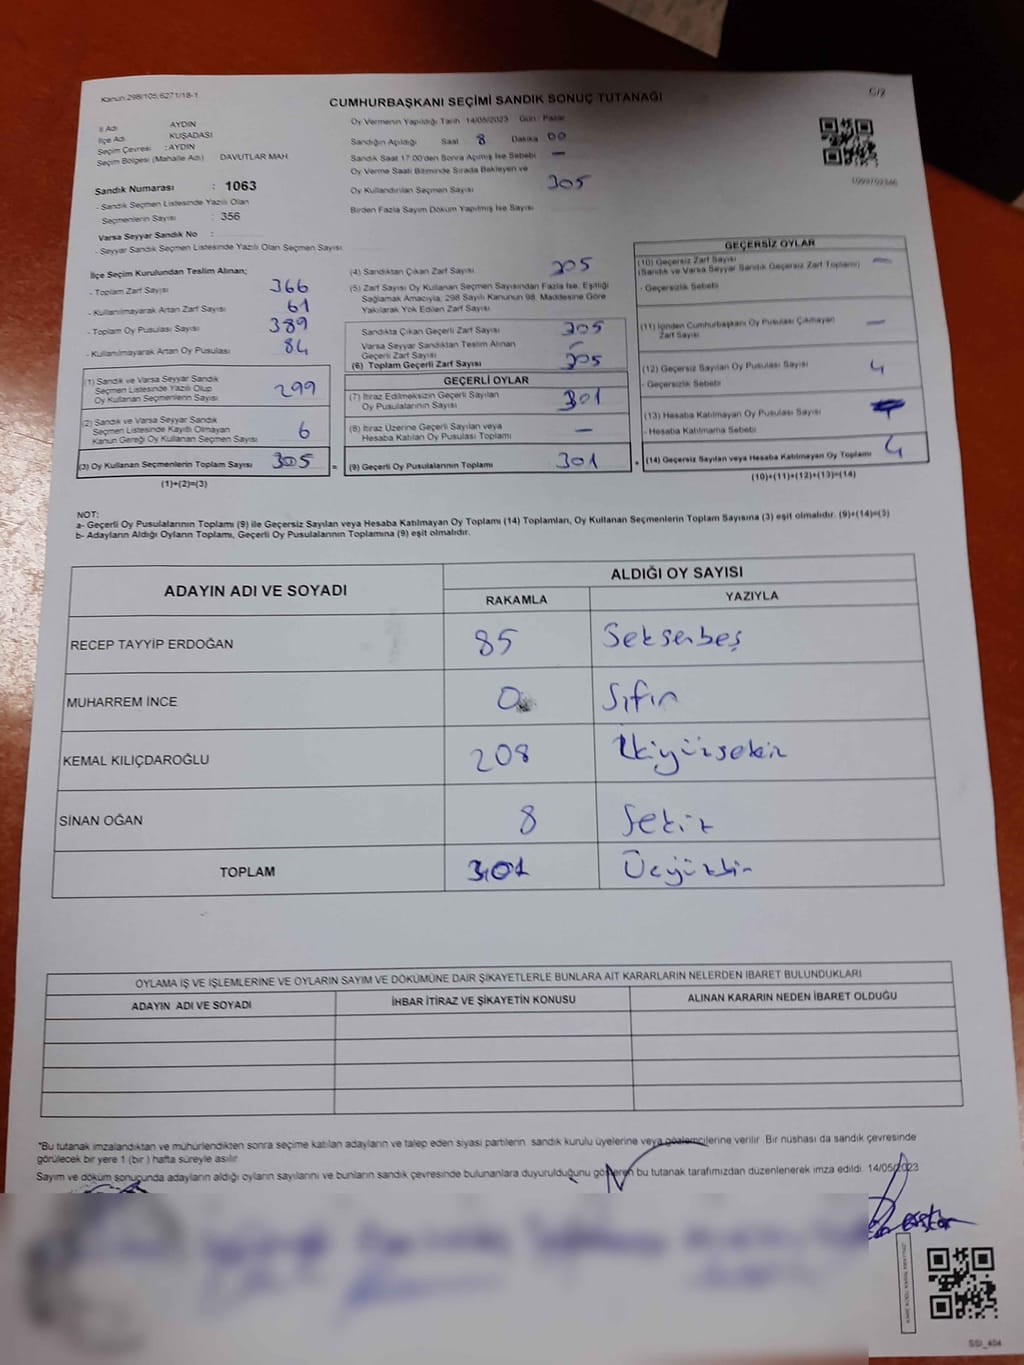 Kanun:298/105;6271/18-1
CUMHURBAŞKANI SEÇİMİ SANDIK SONUÇ TUTANAĞI
İl Adı AYDIN
İlçe Adı KUŞADASI
Seçim Çevresi : AYDIN
Seçim Bölgesi (Mahalle Adı) DAVUTLAR MAH.
Oy Vermenin Yapıldığı Tarih 14/05/2023 Gün: Pazar
Sandığın Açıldığı Saat 8 Dakika 00
Sandık Saat 17.00'den Sonra Açılmış İse Sebebi —
Oy Verme Saati Bitiminde Sırada Bekleyen ve
Oy Kullandırılan Seçmen Sayısı 305
Birden Fazla Sayım Döküm Yapılmış İse Sayısı
Sandık Numarası : 1063
- Sandık Seçmen Listesinde Yazılı Olan
Seçmenlerin Sayısı : 356
Varsa Seyyar Sandık No :
- Seyyar Sandık Seçmen Listesinde Yazılı Olan Seçmen Sayısı:
İlçe Seçim Kurulundan Teslim Alınan;
- Toplam Zarf Sayısı 366
- Kullanılmayarak Artan Zarf Sayısı 61
- Toplam Oy Pusulası Sayısı 389
- Kullanılmayarak Artan Oy Pusulası 84
(1) Sandık ve Varsa Seyyar Sandık
Seçmen Listesinde Yazılı Olup
Oy Kullanan Seçmenlerin Sayısı 299
(2) Sandık ve Varsa Seyyar Sandık
Seçmen Listesinde Kayıtlı Olmayan
Kanun Gereği Oy Kullanan Seçmen Sayısı 6
(3) Oy Kullanan Seçmenlerin Toplam Sayısı 305
(1)+(2)=(3)
(4) Sandıktan Çıkan Zarf Sayısı 305
(5) Zarf Sayısı Oy Kullanan Seçmen Sayısından Fazla İse, Eşitliği
Sağlamak Amacıyla, 298 Sayılı Kanunun 98. Maddesine Göre
Yakılarak Yok Edilen Zarf Sayısı
Sandıkta Çıkan Geçerli Zarf Sayısı 305
Varsa Seyyar Sandıktan Teslim Alınan
Geçerli Zarf Sayısı —
(6) Toplam Geçerli Zarf Sayısı 305
GEÇERLİ OYLAR
(7) İtiraz Edilmeksizin Geçerli Sayılan
Oy Pusulalarının Sayısı 301
(8) İtiraz Üzerine Geçerli Sayılan veya
Hesaba Katılan Oy Pusulası Toplamı —
(9) Geçerli Oy Pusulalarının Toplamı 301
GEÇERSİZ OYLAR
(10) Geçersiz Zarf Sayısı —
(Sandık ve Varsa Seyyar Sandık Geçersiz Zarf Toplamı)
- Geçersizlik Sebebi
(11) İçinden Cumhurbaşkanı Oy Pusulası Çıkmayan —
Zarf Sayısı
(12) Geçersiz Sayılan Oy Pusulası Sayısı 4
- Geçersizlik Sebebi
(13) Hesaba Katılmayan Oy Pusulası Sayısı
- Hesaba Katılmama Sebebi
(14) Geçersiz Sayılan veya Hesaba Katılmayan Oy Toplamı 4
(10)+(11)+(12)+(13)=(14)
NOT:
a- Geçerli Oy Pusulalarının Toplamı (9) ile Geçersiz Sayılan veya Hesaba Katılmayan Oy Toplamı (14) Toplamları, Oy Kullanan Seçmenlerin Toplam Sayısına (3) eşit olmalıdır. (9)+(14)=(3)
b- Adayların Aldığı Oyların Toplamı, Geçerli Oy Pusulalarının Toplamına (9) eşit olmalıdır.
ADAYIN ADI VE SOYADI ALDIĞI OY SAYISI
RAKAMLA YAZIYLA
RECEP TAYYİP ERDOĞAN 85 Seksenbeş
MUHARREM İNCE 0 Sıfır
KEMAL KILIÇDAROĞLU 208 İkiyüzsekiz
SİNAN OĞAN 8 Sekiz
TOPLAM 301 Üçyüzbir
OYLAMA İŞ VE İŞLEMLERİNE VE OYLARIN SAYIM VE DÖKÜMÜNE DAİR ŞİKAYETLERLE BUNLARA AİT KARARLARIN NELERDEN İBARET BULUNDUKLARI
ADAYIN ADI VE SOYADI İHBAR İTİRAZ VE ŞİKAYETİN KONUSU ALINAN KARARIN NEDEN İBARET OLDUĞU
*Bu tutanak imzalandıktan ve mühürlendikten sonra seçime katılan adayların ve talep eden siyasi partilerin sandık kurulu üyelerine veya gözlemcilerine verilir. Bir nüshası da sandık çevresinde
görülecek bir yere 1 (bir) hafta süreyle asılır.
Sayım ve döküm sonucunda adayların aldığı oyların sayılarını ve bunların sandık çevresinde bulunanlara duyurulduğunu gösteren bu tutanak tarafımızdan düzenlenerek imza edildi. 14/05/2023
SSI_404